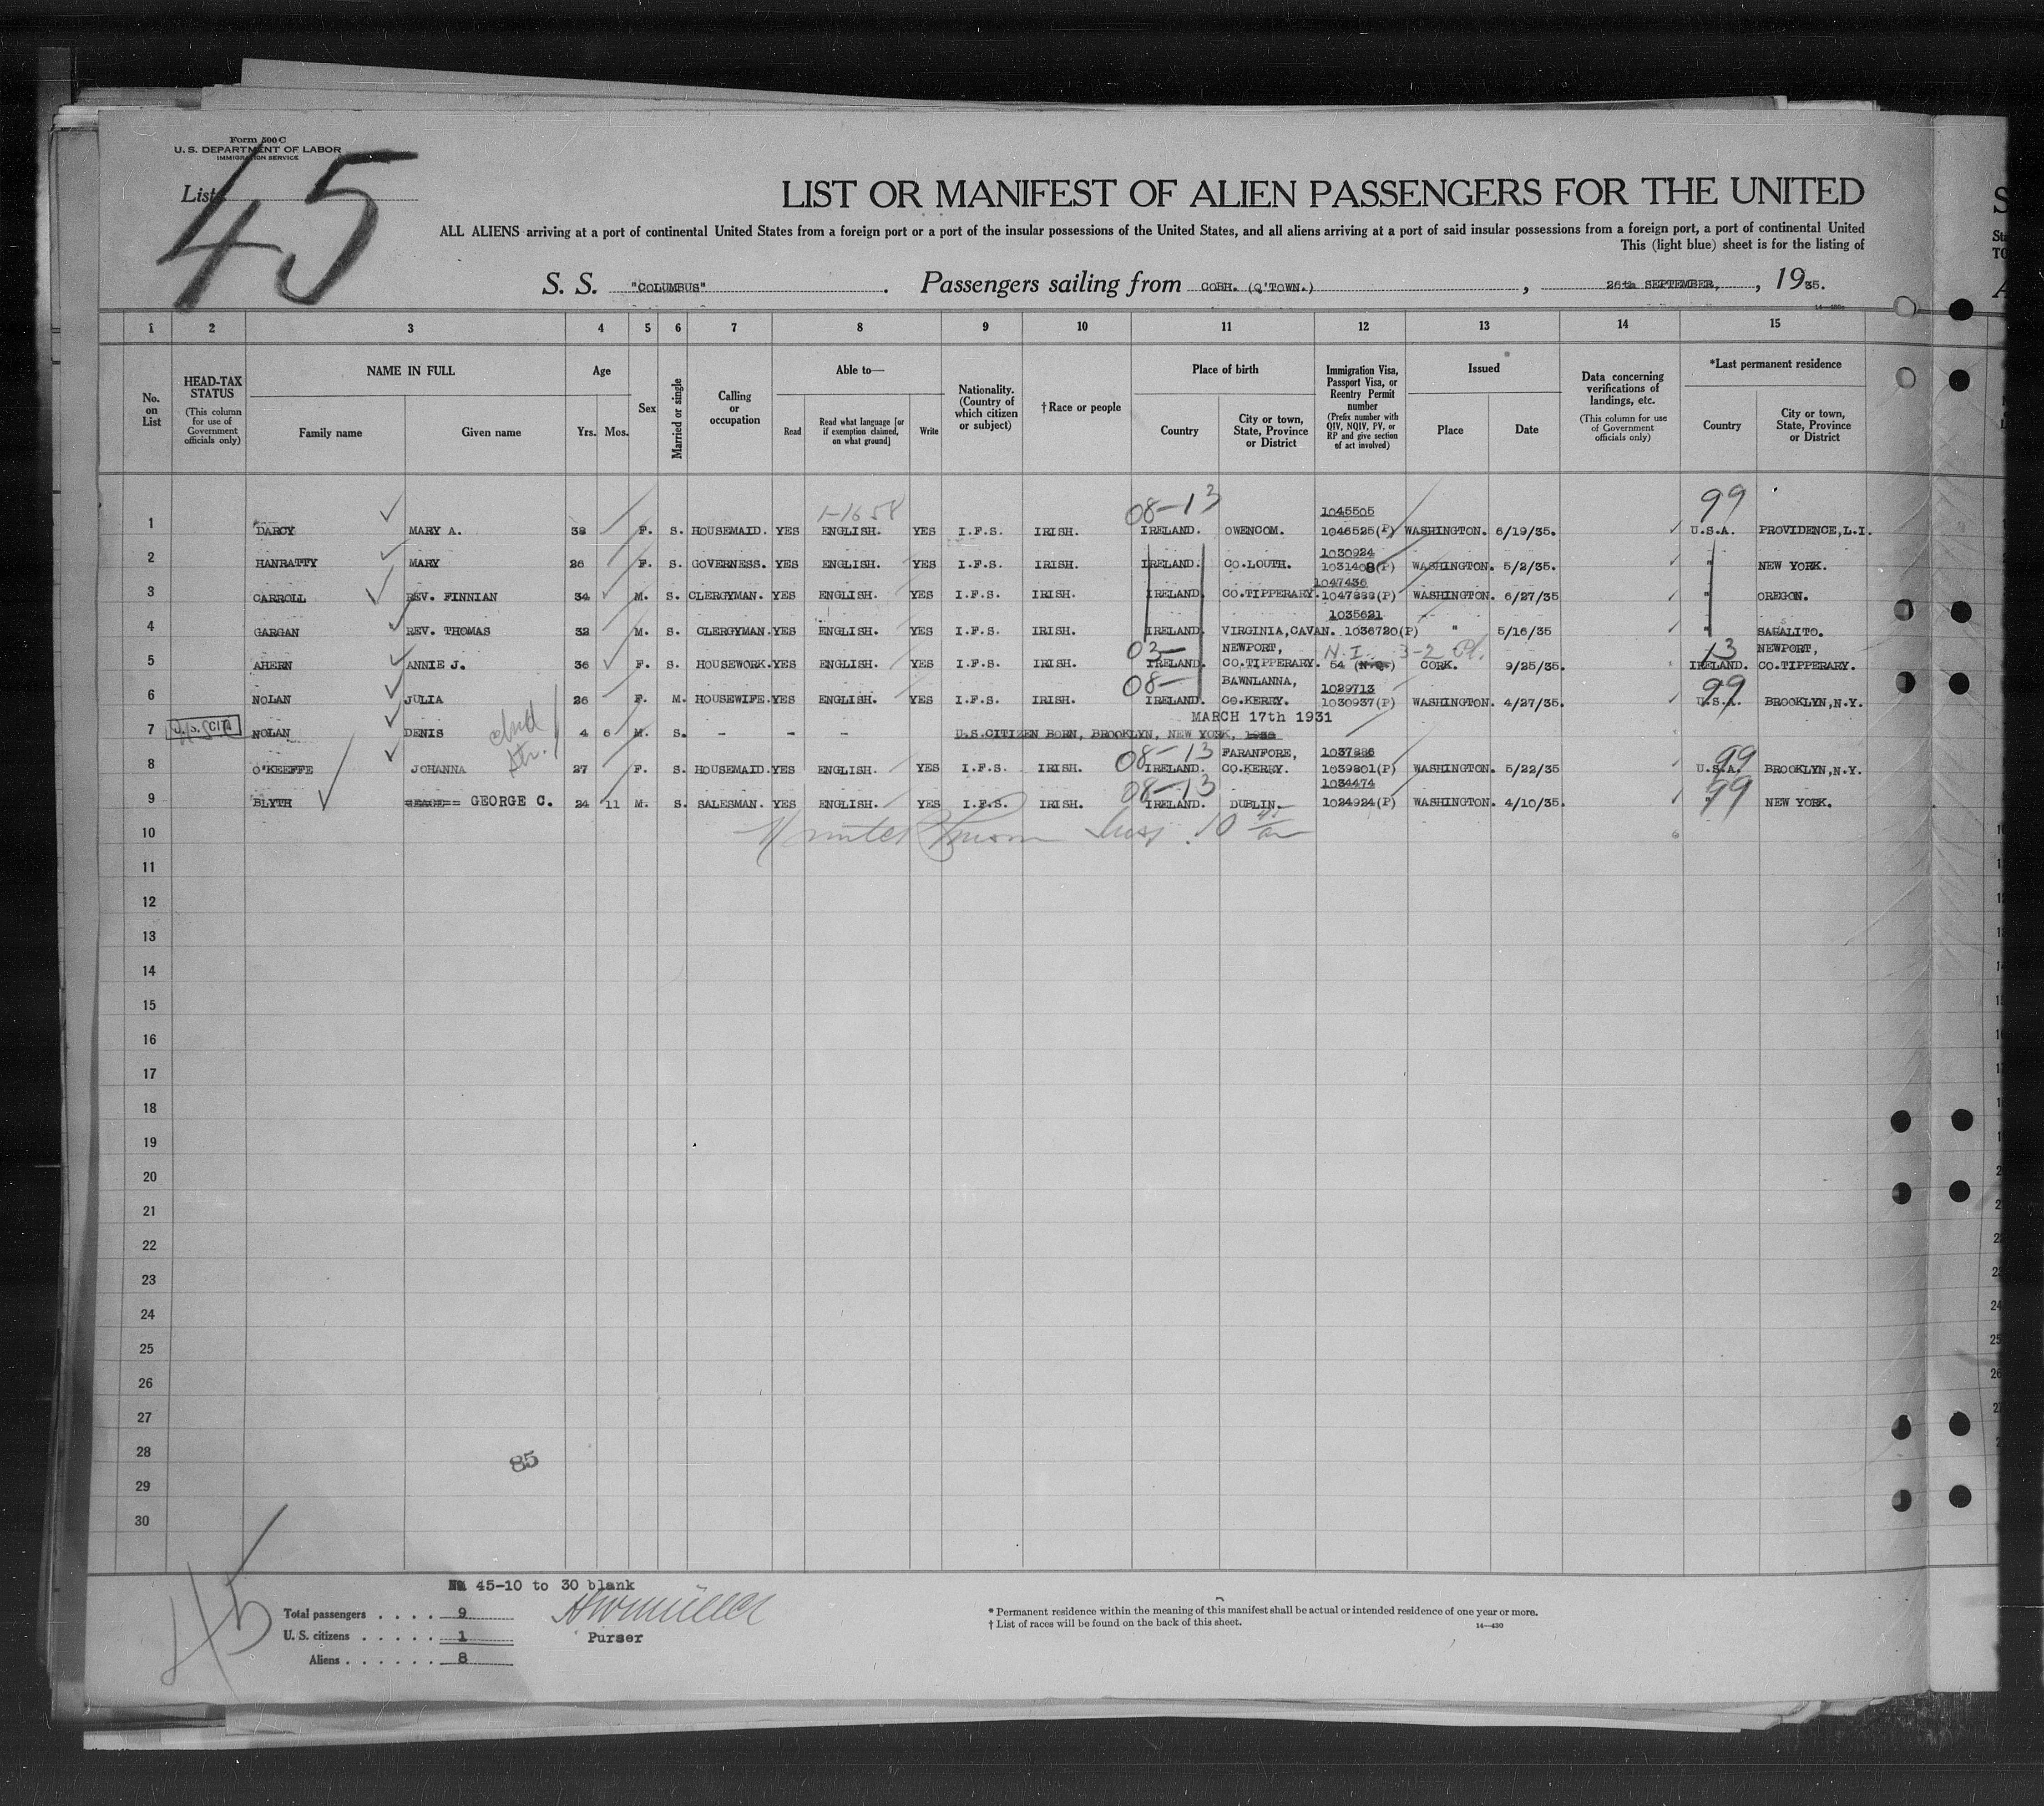 Form 500 C
U. S. DEPARTMENT OF LABOR
IMMIGRATION SERVICE
List
45
LIST OR MANIFEST OF ALIEN PASSENGERS FOR THE UNITED
ALL ALIENS arriving at a port of continental United States from a foreign port or a port of the insular possessions of the United States, and all aliens arriving at a port of said insular possessions from a foreign port, a port of continental United
This (light blue) sheet is for the listing of
S. S. "COLUMBUS". Passengers sailing from COBH. (Q'TOWN.), 26th SEPTEMBER, , 1935.
1 2 3 4 5 6 7 8 9 10 11 12 13 14 15
No. on List
HEAD-TAX STATUS (This column for use of Government officials only)
NAME IN FULL
Family name Given name
Age
Yrs. Mos.
Sex
Married or single
Calling or occupation
Able to—
Read Read what language [or if exemption claimed, on what ground] Write
Nationality. (Country of which citizen or subject)
†Race or people
Place of birth
Country City or town, State, Province or District
Immigration Visa, Passport Visa, or Reentry Permit number (Prefix number with QIV, NQIV, PV, or RP and give section of act involved)
Issued
Place Date
Data concerning verifications of landings, etc. (This column for use of Government officials only)
*Last permanent residence
Country City or town, State, Province or District
1-1658 08-13 1045505 99
1 DARCY MARY A. 38 F. S. HOUSEMAID. YES ENGLISH. YES I.F.S. IRISH. IRELAND. OWENCOM. 1046525(P) WASHINGTON. 6/19/35. U.S.A. PROVIDENCE,L.I.
1030924
2 HANRATTY MARY 26 F. S. GOVERNESS. YES ENGLISH. YES I.F.S. IRISH. IRELAND. CO.LOUTH. 1031408(P) WASHINGTON. 5/2/35. " NEW YORK.
1047436
3 CARROLL REV. FINNIAN 34 M. S. CLERGYMAN. YES ENGLISH. YES I.F.S. IRISH. IRELAND. CO.TIPPERARY. 1047888(P) WASHINGTON. 6/27/35 " OREGON.
1035621
4 GARGAN REV. THOMAS 32 M. S. CLERGYMAN. YES ENGLISH. YES I.F.S. IRISH. IRELAND. VIRGINIA,CAVAN. 1036720(P) " 5/16/35 " SAHALITO.
03- NEWPORT, N.I. 3-2 13 NEWPORT,
5 AHERN ANNIE J. 36 F. S. HOUSEWORK. YES ENGLISH. YES I.F.S. IRISH. IRELAND. CO.TIPPERARY. 54 (N.Q.) CORK. 9/25/35. IRELAND. CO.TIPPERARY.
08- BAWNLANNA, 1029713 99
6 NOLAN JULIA 26 F. M. HOUSEWIFE. YES ENGLISH. YES I.F.S. IRISH. IRELAND. CO.KERRY. 1030937(P) WASHINGTON. 4/27/35. U.S.A. BROOKLYN,N.Y.
MARCH 17th 1931
7 U.S. CIT NOLAN DENIS 4 6 M. S. - - - U.S.CITIZEN BORN, BROOKLYN, NEW YORK,
08-13 FARANFORE, 1037886 99
8 O'KEEFFE JOHANNA 27 F. S. HOUSEMAID. YES ENGLISH. YES I.F.S. IRISH. IRELAND. CO.KERRY. 1039801(P) WASHINGTON. 5/22/35 U.S.A. BROOKLYN,N.Y.
08-13 1034474 99
9 BLYTH GEORGE C. 24 11 M. S. SALESMAN. YES ENGLISH. YES I.F.S. IRISH. IRELAND. DUBLIN. 1024924(P) WASHINGTON. 4/10/35. " NEW YORK.
10
11
12
13
14
15
16
17
18
19
20
21
22
23
24
25
26
27
28
85
29
30
45
No 45-10 to 30 blank
Total passengers . . . . 9
U. S. citizens . . . . . 1
Aliens . . . . . . 8
Purser
* Permanent residence within the meaning of this manifest shall be actual or intended residence of one year or more.
† List of races will be found on the back of this sheet.
14—430